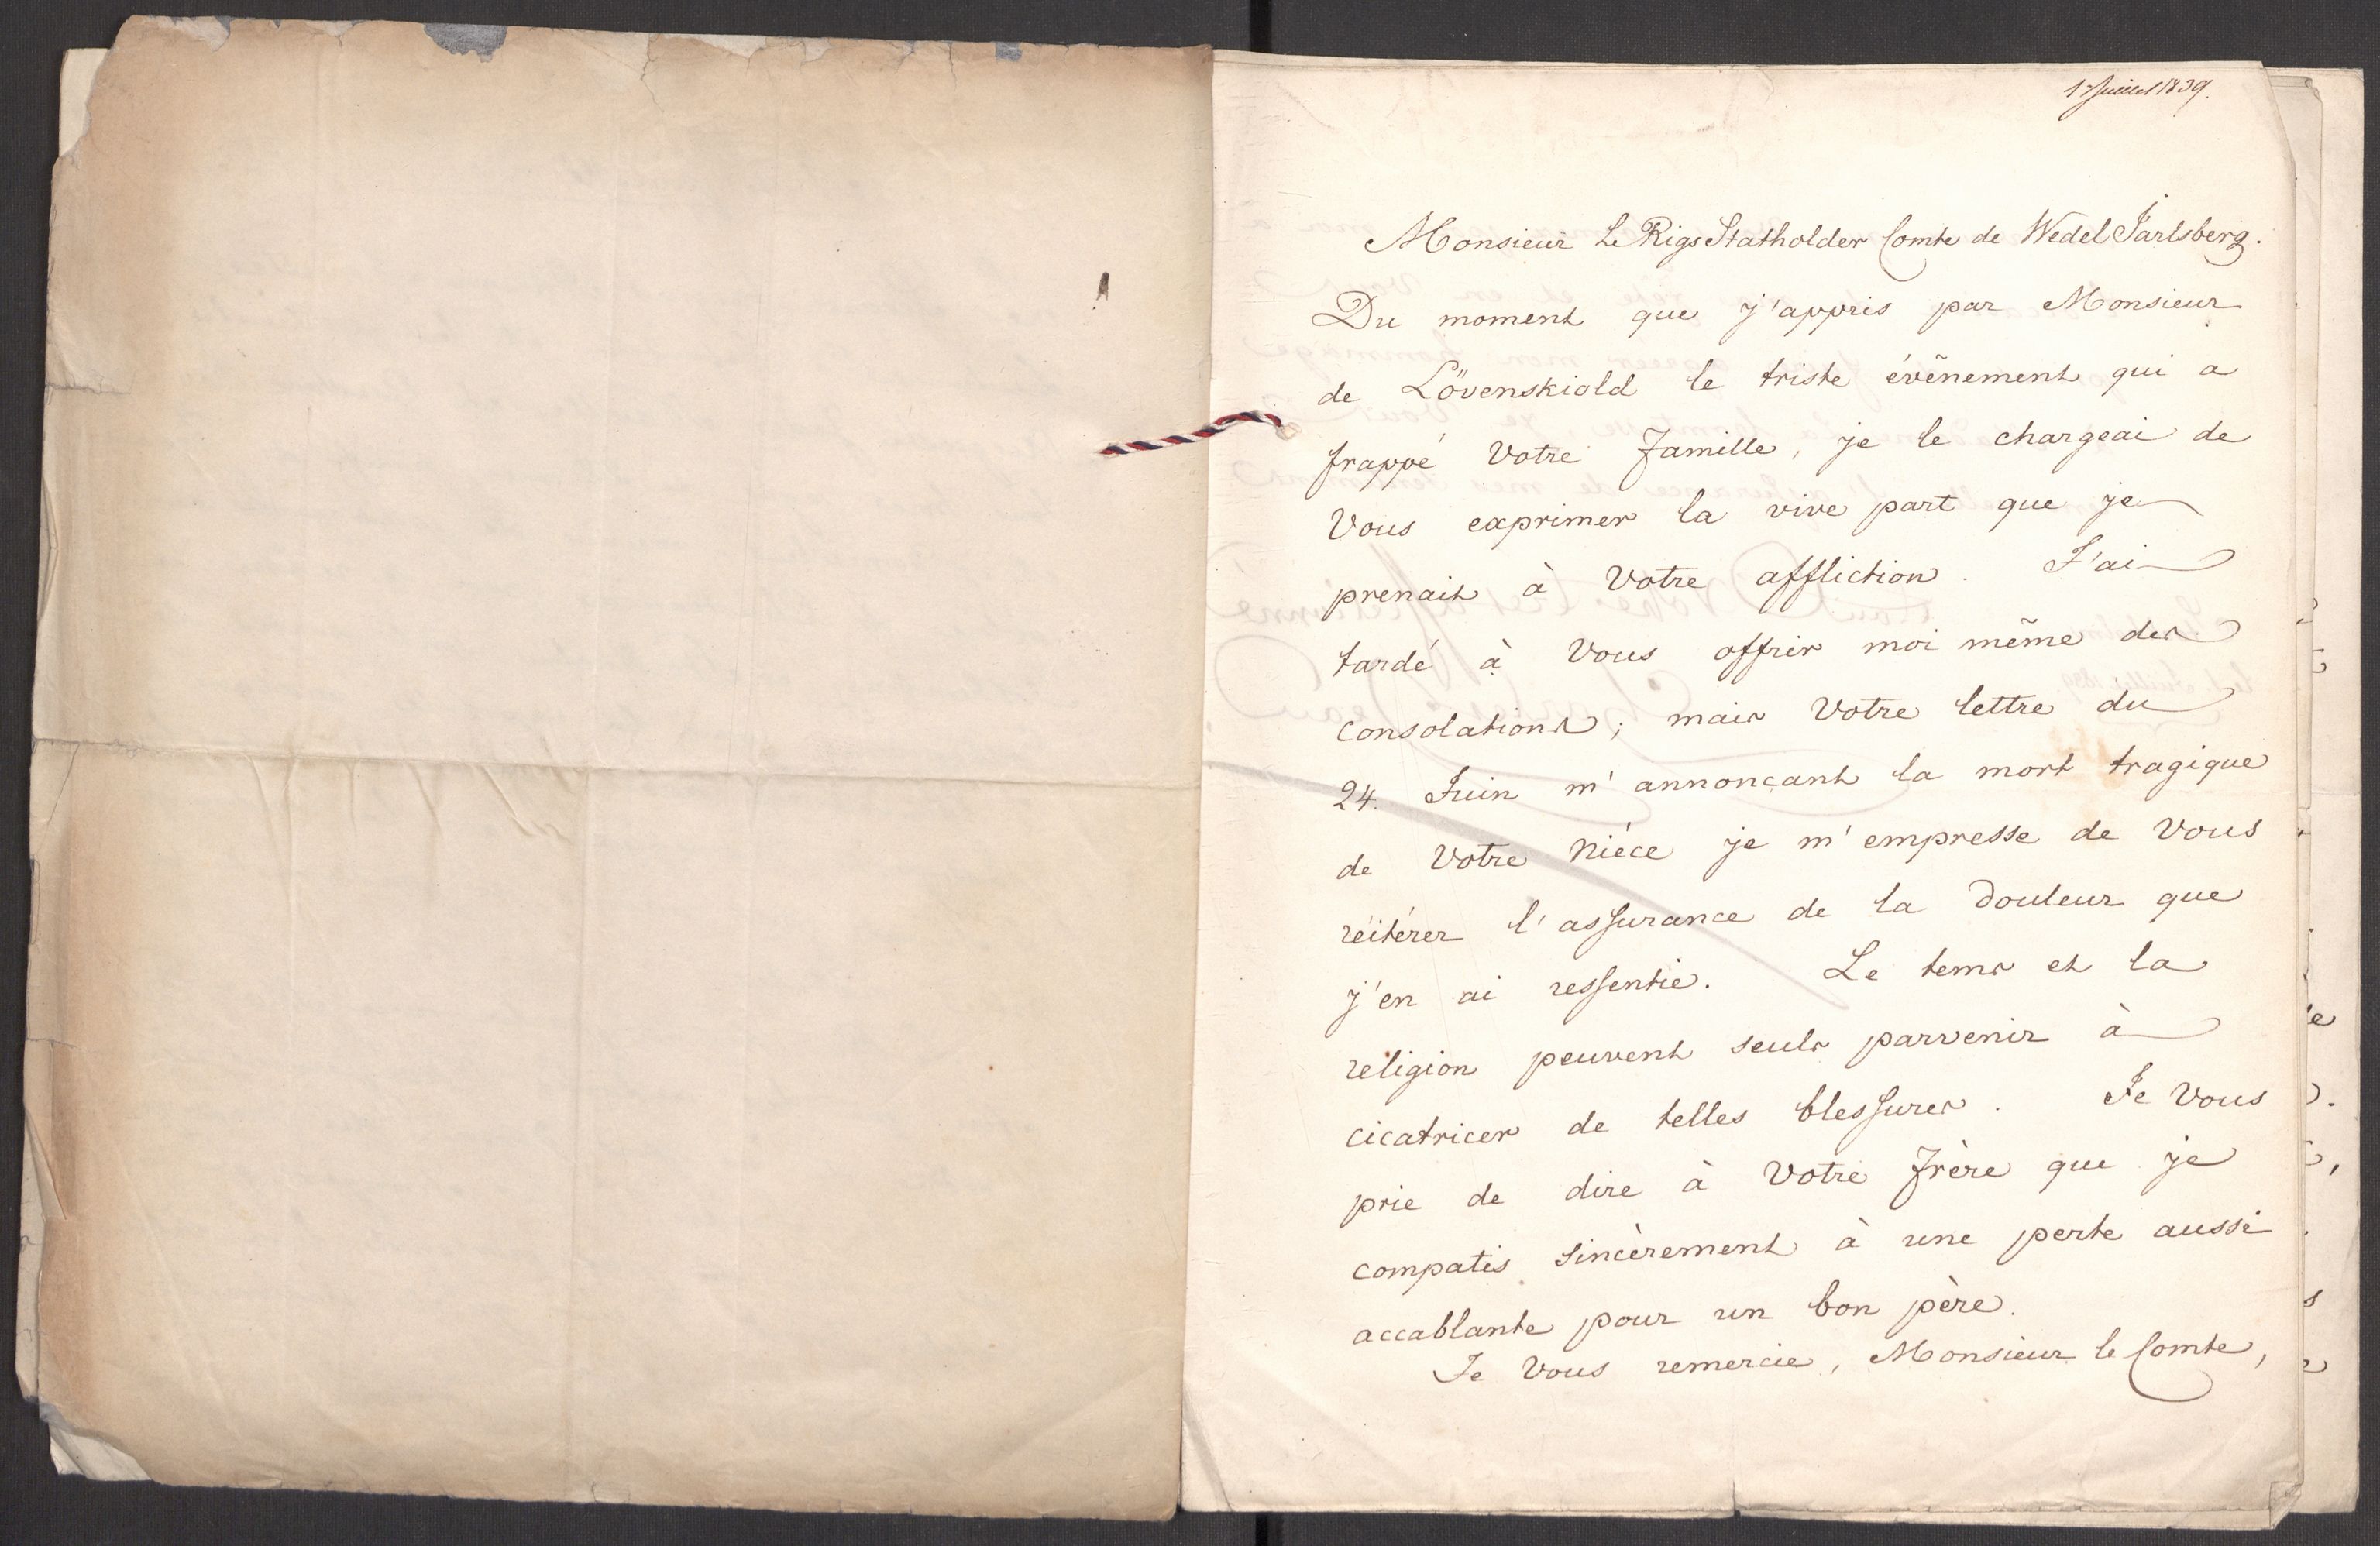 1 Juillet 1839.
Monsieur Le RigsStatholder Comte de Wedel Jarlsberg.
Du moment que j'appris par Monsieur
de Lövenskiold le triste évênement qui a
frappé Votre Famille, je le chargeai de
Vous exprimer la vive part que je
prenais à Votre affliction. J'ai
tardé à Vous offrir moi même des
consolations; mais Votre lettre du
24. Juin m'annonçant la mort tragique
de Votre Niéce je m'empresse de Vous
réitérer l'assurance de la Douleur que
j'en ai ressentie. Le tems et la
religion peuvent seuls parvenir à
cicatricer de telles blessures. Je Vous
prie de dire à Votre Frère que je
compatis sincèrement à une perte aussi
accablante pour un bon père.
Je Vous remercie, Monsieur le Comte,